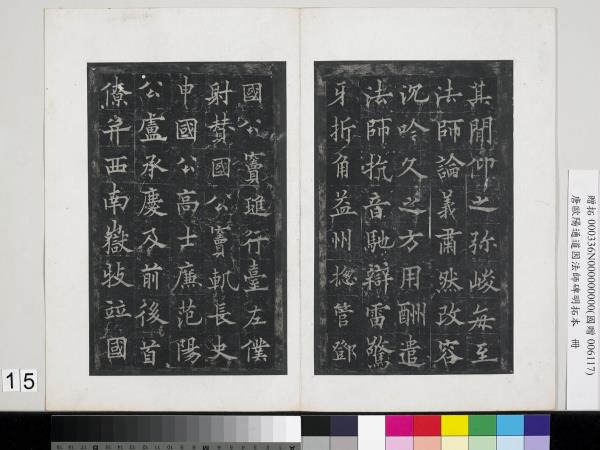 其間仰之彌峻每至
法師論義肅然改容
沉吟久之方用酬遣
法師抗音馳辯雷驚
牙折角益州揔管鄧
國公竇璡行臺左僕
射贊國公竇軌長史
申國公高士廉范陽
公盧承慶及前後首
僚并西南嶽牧竝國
贈拓 000336N000000000(國贈 006117)
唐歐陽通道因法師碑明拓本 冊
15